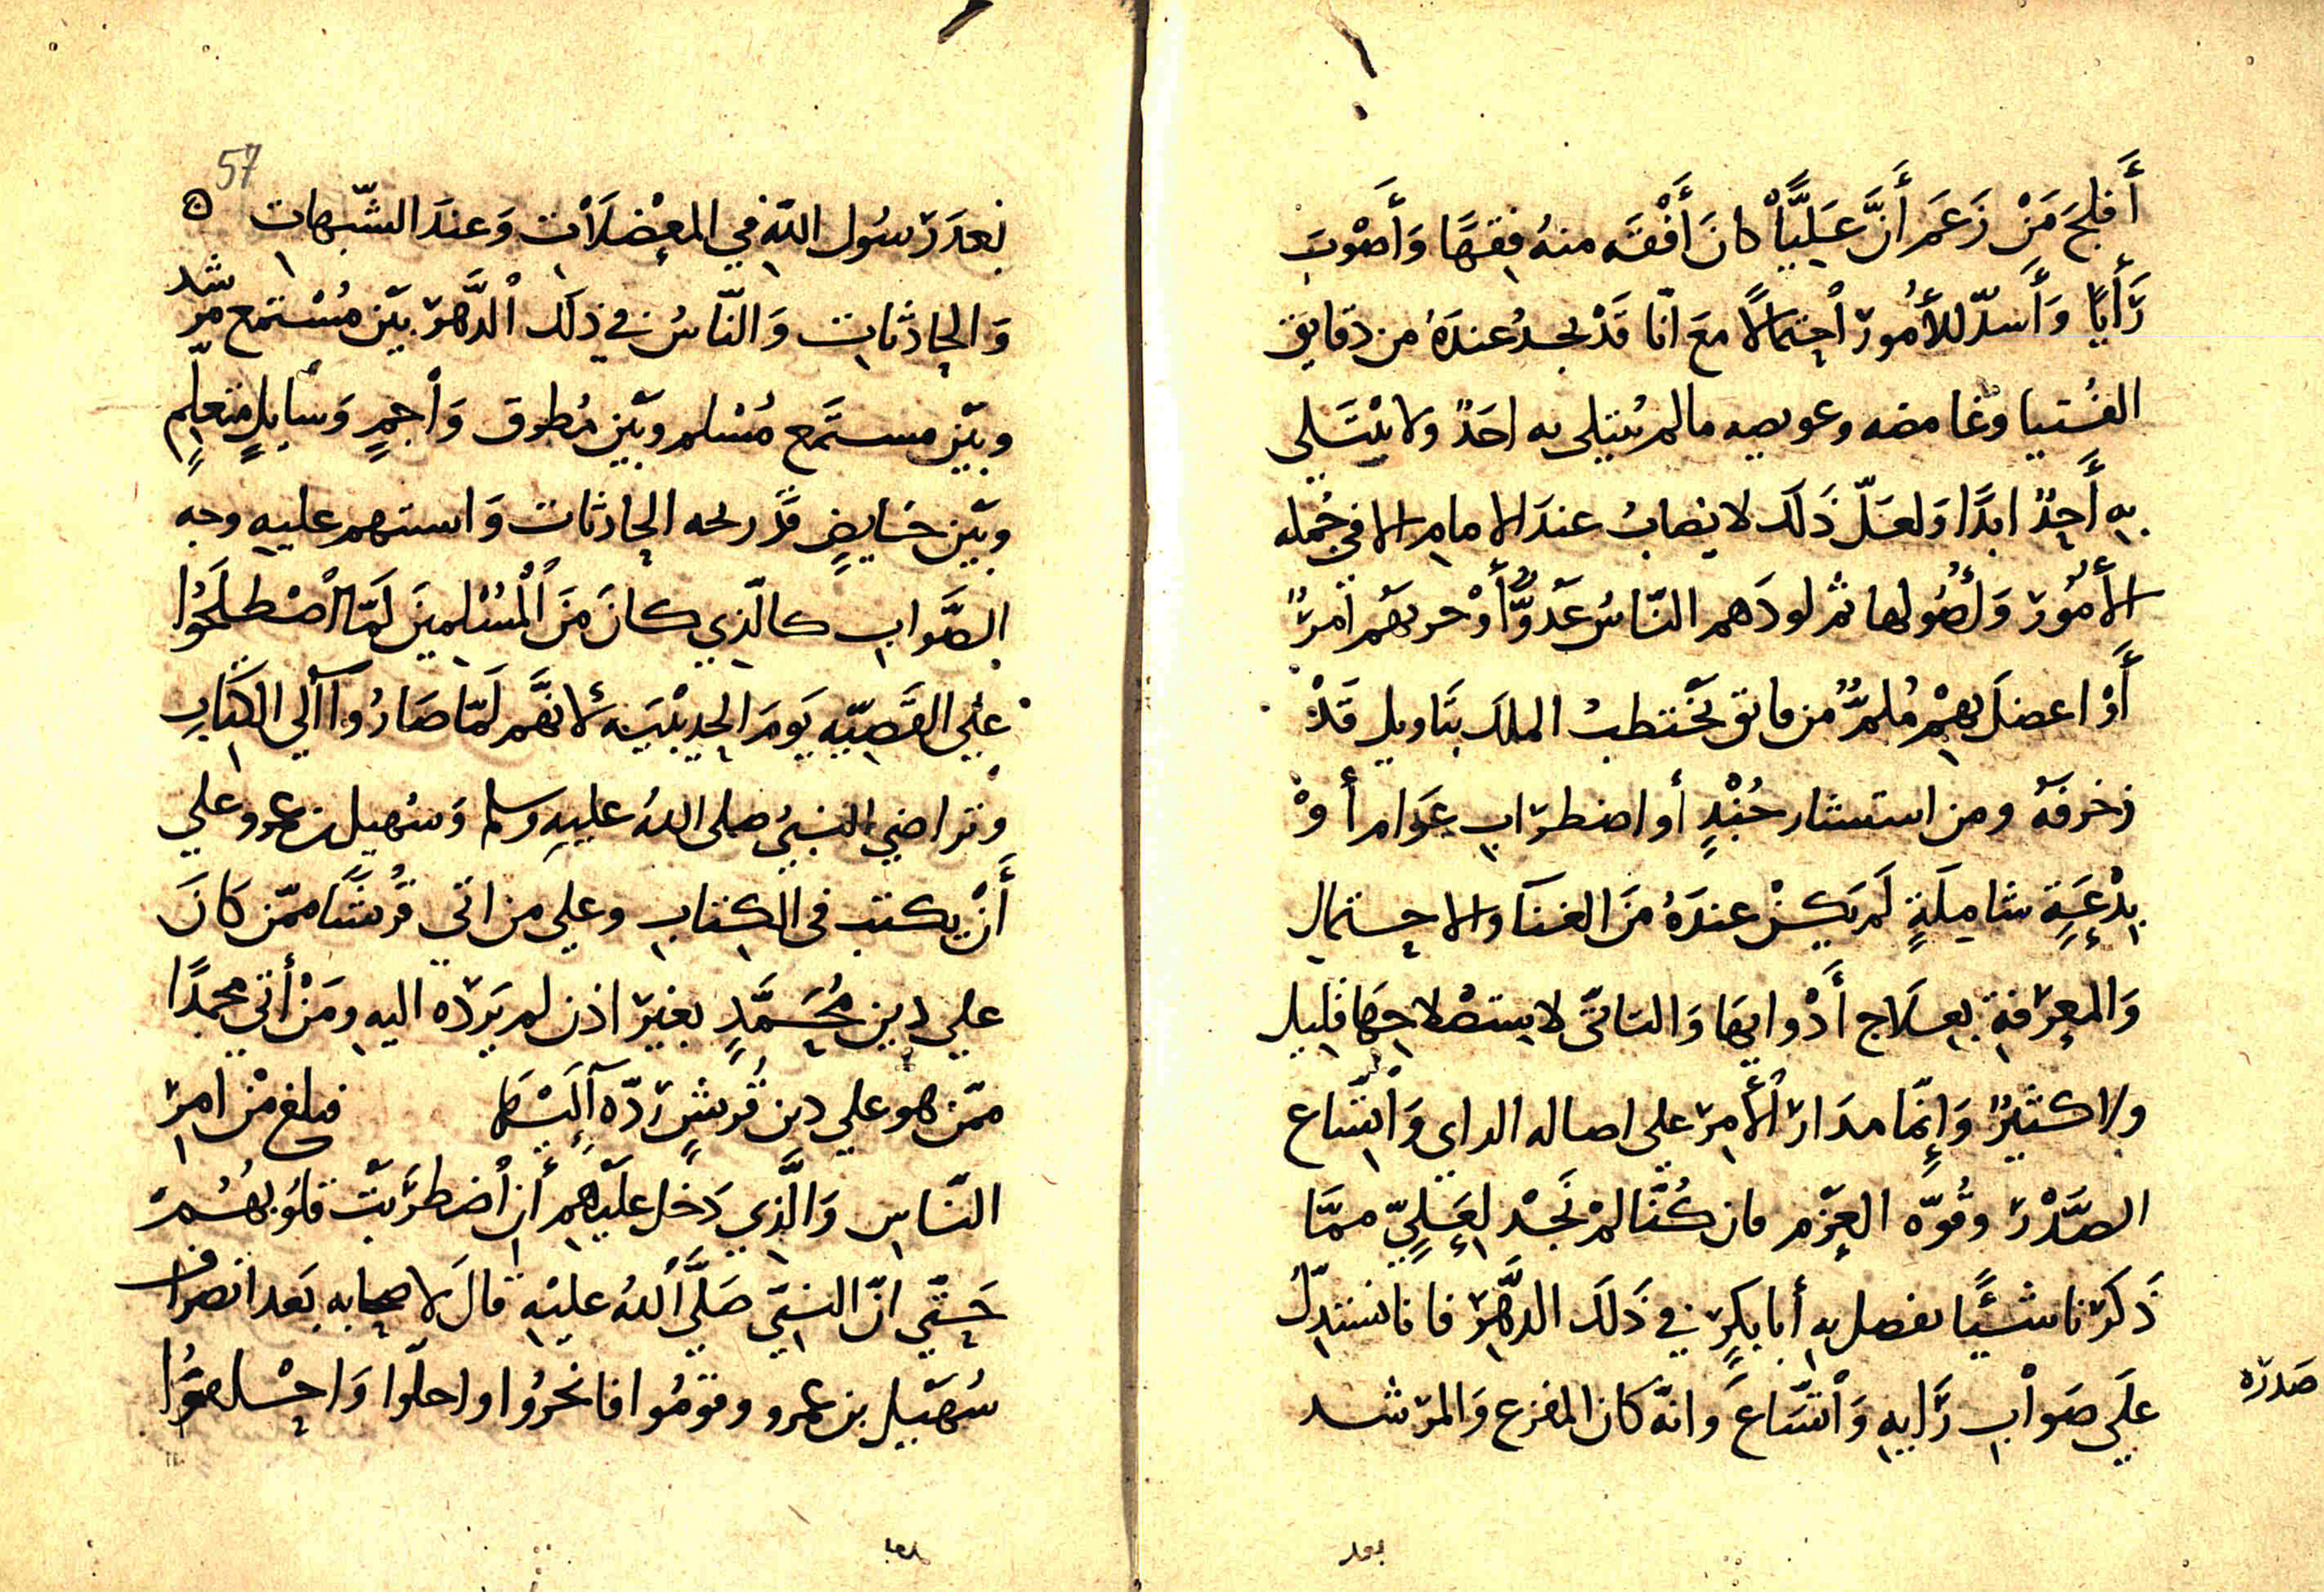 أَفلجَ مَنْ زَعَمَ أَنَّ عَلِيًّا كانَ أَفْقَه منهُ فِقهًا وَأَصْوَبَ
رَأيًا وَأَسدّ للأُمُور اْحتمالاً معَ انّا قَدْ نجدُ عندَهُ من دقايق
الفُتيا وَغامضه وعويصه مالم يُبتلى به احَدٌ ولا يُبْتَلي
بهِ أَحِدٌ ابدًا وَلعَلّ ذَلَك لا يصابُ عندَ الامام الا في جُمله
الأُمُور وَأُصُولها ثم لو دَهم النّاسَ عَدُوٌّ أَوْ حربهَم امرٌ
أَوْ اعضلَ بهِمْ مُلمٌّ من مختطب الملك بتَاويل قَدْ
زخرفَهُ ومن استشار جُنْدٍ أو اضطرَاب عَوام أَوْ
بِدْعَةٍ شامِلَةٍ لَم يَكنْ عندَهُ مَن الغنَآ والاحتمالِ
وَالمعرفة بعِلاج أَدْوائهَا وَالتاتّي لاستصْلاحِهَا قليل
ولاكثيرٌ وَإِنَّما مدَار اْلأَمر علي اصاله الراي وَاتّساع
الصَّدْرَ وقُوّه العزْم فان كُنَّا لمْ نَجدْ لِعَلِيّ ممَّا
ذَكَرْنا شَيْئًا يفصل به أَبا بكرٍ في ذَلَك الدَّهرَ فانا نستدِلّ
علَي صوَاْب رَايهِ وَاْتّسَاعَ وانّه كان المفزع وَالمرشد
صَدره
بعد
57
بعدَ رَسُول اللّه في المعْضلَاْت وَعندَ الشّبهات
وَالحادثات وَالنّاسُ في ذلَك اْلدَّهرَ بيَن مُسْتمع مرشد
وبيَن مستَمع مُسْلم وبيَن مُطرق وَاْجمٍ وَسَايلٍ متعلّمٍ
وبيَن خايضٍ قدَ الحادثات وَاستبهم عليهِ وجه
الصَّواب كالّذي كانَ مَن اْلمُسْلمينَ لَمّا اْصْطلَحُوُا
علي القَضيّه يَومَ الحديْبيَه لأنهَّم لَمّا صَارُوا آلي الكتَابِ
وتراضي النبيُ صلى اللهُ عليهِ وسلم وَسُهيل بن عمرو علي
أَنْ يكتب في الكتاب وعلي من اتي قُريشًا ممّن كَانَ
علي دين مُحَمَّدٍ بغير اذن لم يَردّه اليهِ ومَنْ أَتي محمدًا
ممّن هو علي دين قُريشٍ رَدّه فبلغ مْن امر
النّاس وَالَّذي دَخل علَيْهم أَن اْضطرَبَتْ قلوُبهُمْ
حَتّي انّ النبيّ صَلَّي اْللهُ عليْهِ قالَ لاصحابه بَعد انصراف
سُهَيْل بن عمرو وقومُوا فانحرُوُا واحلّوا وَاحْلقوُا